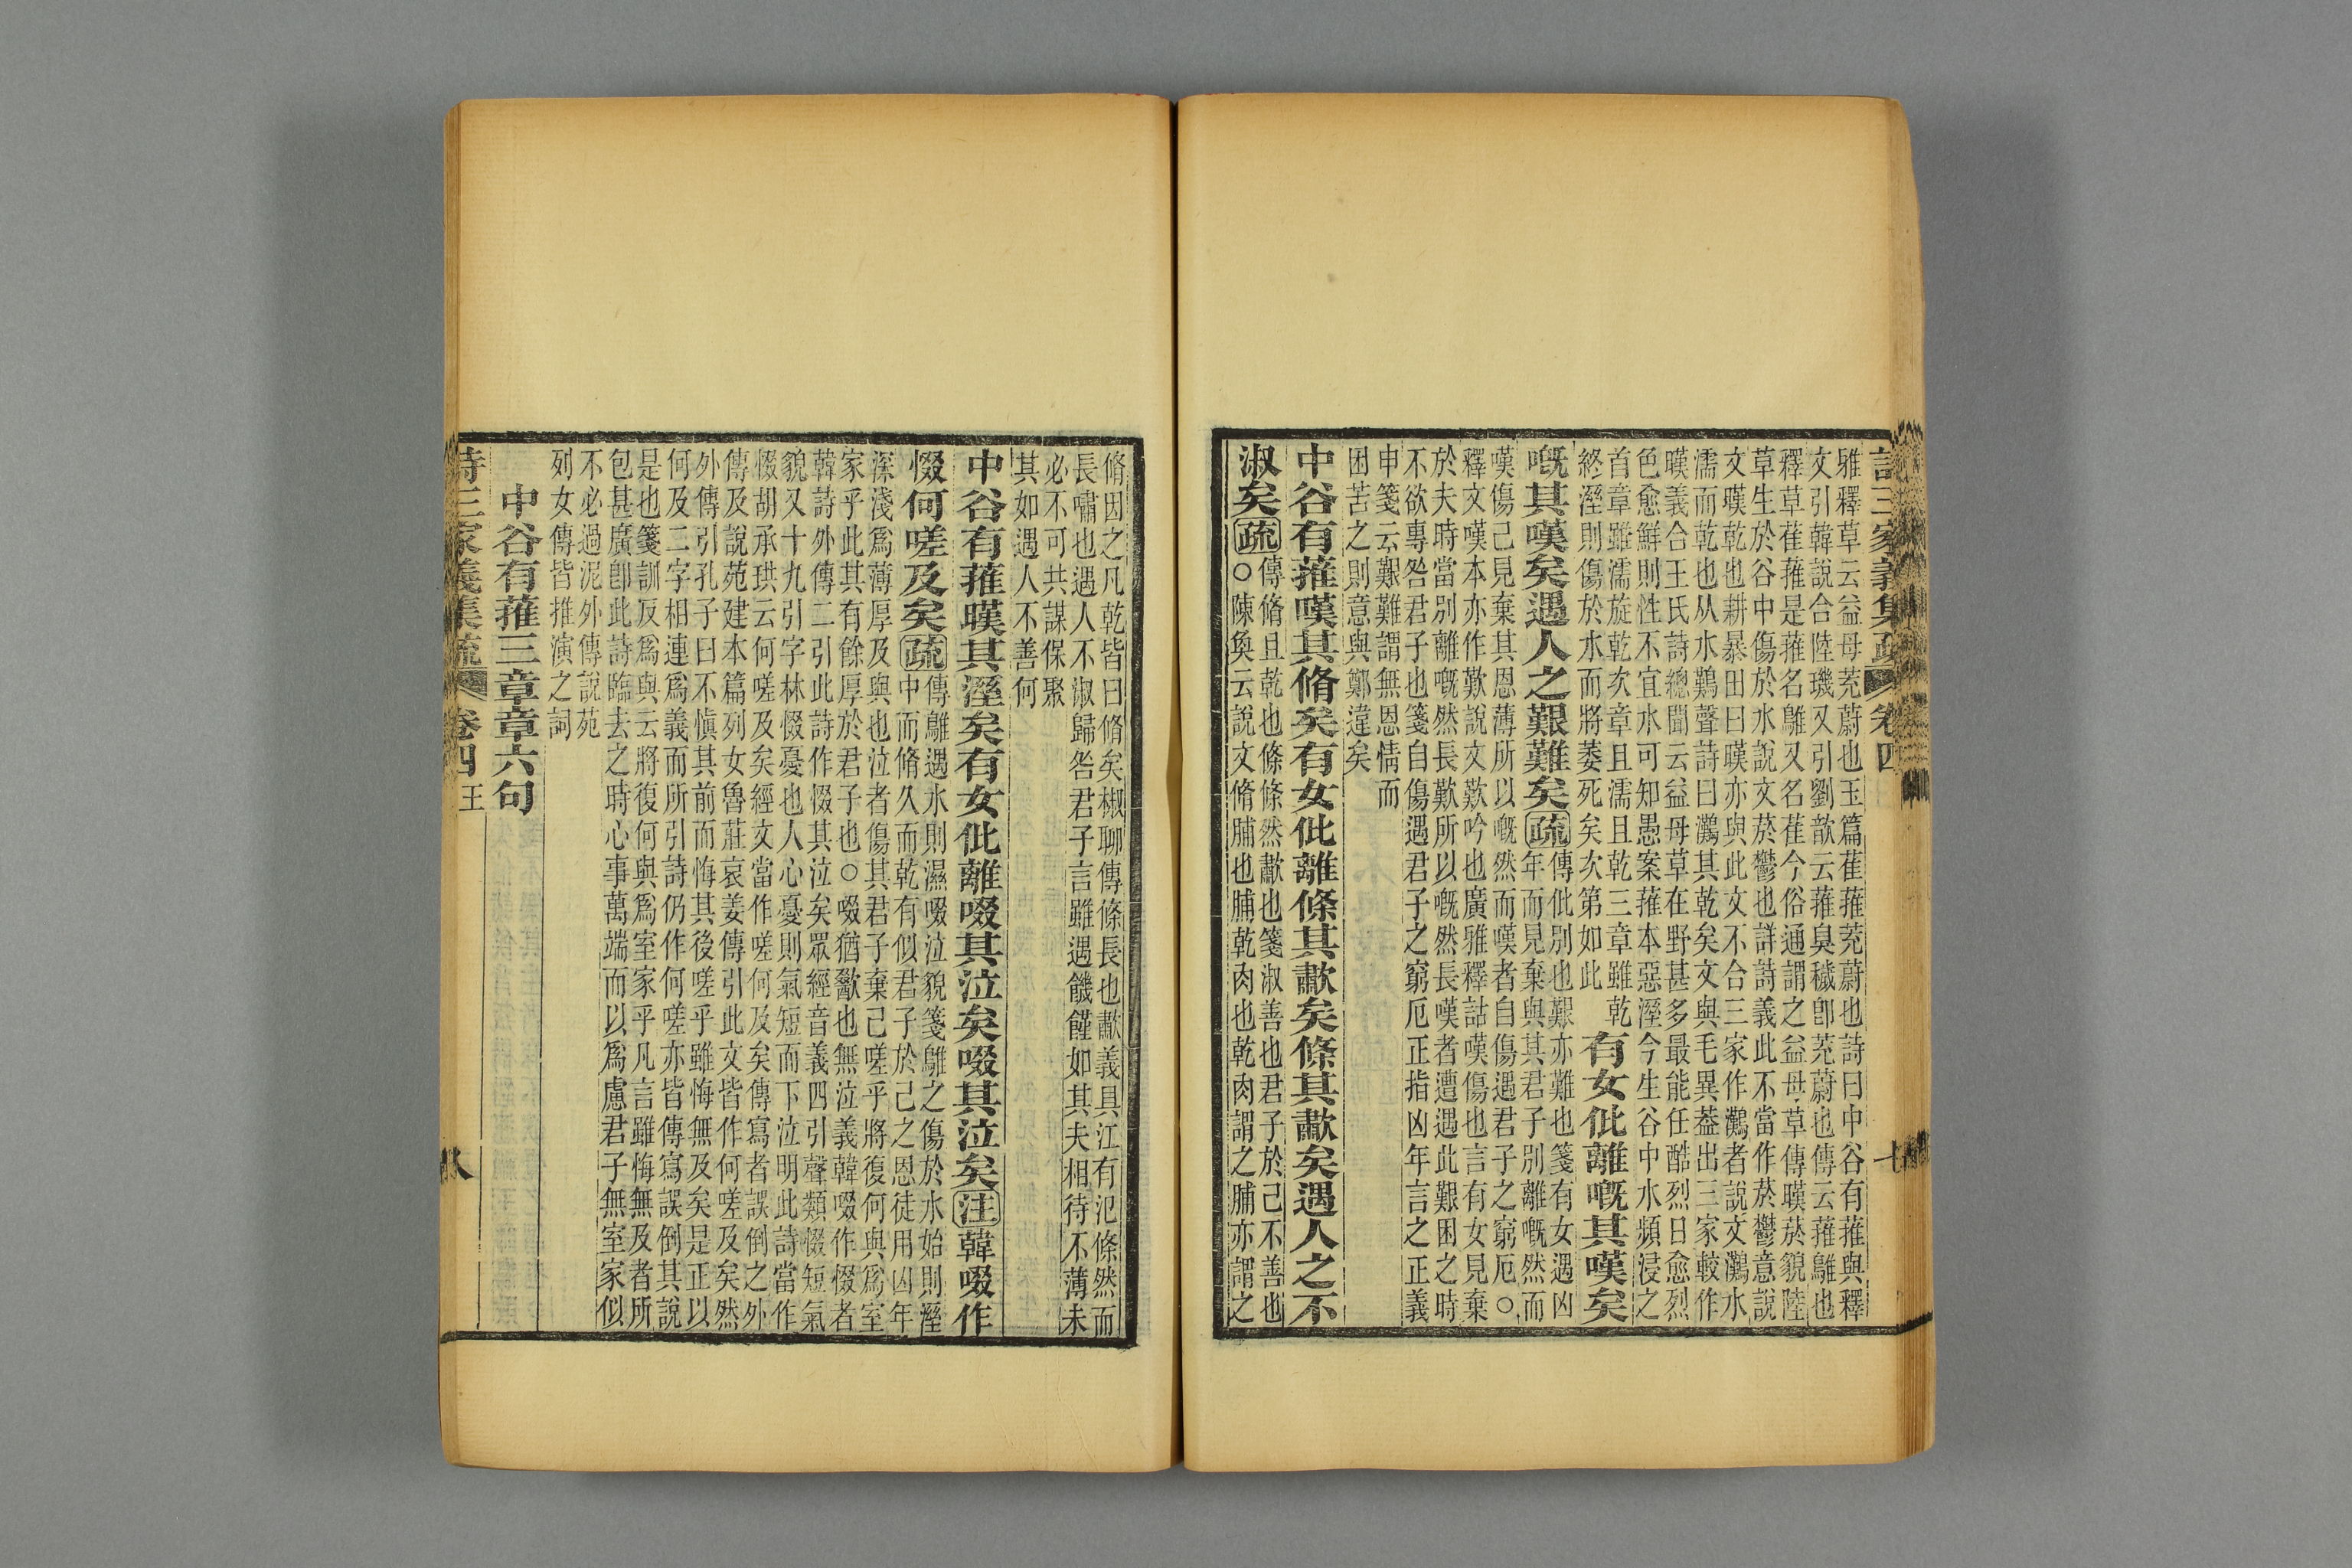 詩三家義集疏 卷四 七
雅釋草云益母茺蔚也玉篇萑蓷茺蔚也詩曰中谷有蓷與釋
文引韓說合陸璣又引劉歆云蓷臭穢卽茺蔚也傳云蓷鵻也
釋草萑蓷是蓷名鵻又名萑今俗通謂之益母草傳暵菸貌陸
草生於谷中傷於水說文菸鬱也詳詩義此不當作菸鬱意說
文暵乾也耕暴田曰暵亦與此文不合三家作灘者說文灘水
濡而乾也从水鷬聲詩曰灘其乾矣文與毛異葢出三家較作
暵義合王氏詩總聞云益母草在野甚多最能任酷烈日愈烈
色愈鮮則性不宜水可知愚案蓷本惡溼今生谷中水頻浸之
首章雖濡旋乾次章且濡且乾三章雖乾
終溼則傷於水而將萎死矣次第如此
有女仳離嘅其嘆矣
嘅其嘆矣遇人之艱難矣疏
傳仳別也艱亦難也箋有女遇凶
年而見棄與其君子別離嘅然而
嘆傷己見棄其恩薄所以嘅然而嘆者自傷遇君子之窮厄○
釋文嘆本亦作歎說文歎吟也廣雅釋詁嘆傷也言有女見棄
於夫時當別離嘅然長歎所以嘅然長嘆者遭遇此艱困之時
不欲專咎君子也箋自傷遇君子之窮厄正指凶年言之正義
申箋云艱難謂無恩情而
困苦之則意與鄭違矣
中谷有蓷嘆其脩矣有女仳離條其歗矣條其歗矣遇人之不
淑矣疏
傳脩且乾也條條然歗也箋淑善也君子於己不善也
○陳奐云說文脩脯也脯乾肉也乾肉謂之脯亦謂之
脩因之凡乾皆曰脩矣椒聊傳條長也歗義具江有氾條然而
長嘯也遇人不淑歸咎君子言雖遇饑饉如其夫相待不薄未
必不可共謀保聚
其如遇人不善何
中谷有蓷暵其溼矣有女仳離啜其泣矣啜其泣矣注韓啜作
惙何嗟及矣疏
傳鵻遇水則濕啜泣貌箋鵻之傷於水始則溼
中而脩久而乾有似君子於己之恩徒用凶年
深淺爲薄厚及與也泣者傷其君子棄己嗟乎將復何與爲室
家乎此其有餘厚於君子也○啜猶歠也無泣義韓啜作惙者
韓詩外傳二引此詩作惙其泣矣眾經音義四引聲類惙短氣
貌又十九引字林惙憂也人心憂則氣短而下泣明此詩當作
惙胡承珙云何嗟及矣經文當作嗟何及矣傳寫者誤倒之外
傳及說苑建本篇列女魯莊哀姜傳引此文皆作何嗟及矣然
外傳引孔子曰不愼其前而悔其後嗟乎雖悔無及矣是正以
何及二字相連爲義而所引詩仍作何嗟亦皆傳寫誤倒其說
是也箋訓及爲與云將復何與爲室家乎凡言雖悔無及者所
包甚廣卽此詩臨去之時心事萬端而以爲慮君子無室家似
不必過泥外傳說苑
列女傳皆推演之詞
中谷有蓷三章章六句
詩三家義集疏 卷四 王 八